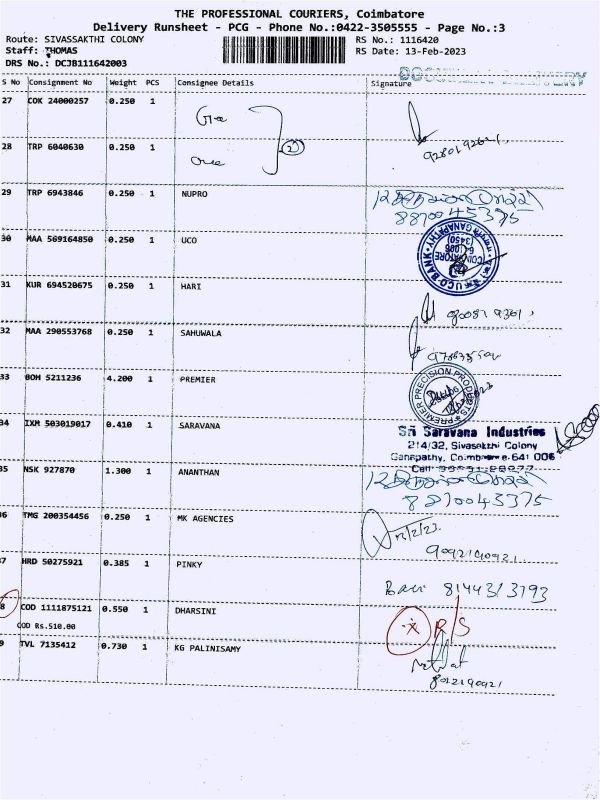 THE PROFESSIONAL COURIERS, Coimbatore
Delivery Runsheet - PCG - Phone No.:0422-3505555 - Page No.:3
Route: SIVASSAKTHI COLONY
RS No.: 1116420
Staff: THOMAS
RS Date: 13-Feb-2023
DRS No.: DCJB111642003
DELIVERY
S No Consignment No Weight PCS Consignee Details Signature
27 COK 24000257 0.250 1
28 TRP 6040630 0.250 1
2
29 TRP 6943846 0.250 1 NUPRO
30 MAA 569164850 0.250 1 UCO
UCO BANK
GANAPATHY
COIMBATORE
31 KUR 694520675 0.250 1 HARI
32 MAA 290553768 0.250 1 SAHUWALA
33 BOM 5211236 4.200 1 PREMIER
PREMIER PRECISION PRODUCTS
34 IXM 503019017 0.410 1 SARAVANA
Sri Saravana Industries
214/32, Sivasakthi Colony
Ganapathy, Coimbatore-641 006
35 NSK 927870 1.300 1 ANANTHAN
8870043375
36 TMG 200354456 0.250 1 MK AGENCIES
13/2/23
9092140921
37 HRD 50275921 0.385 1 PINKY
8144313793
38 COD 1111875121 0.550 1 DHARSINI
COD Rs.510.00
R/S
39 TVL 7135412 0.730 1 KG PALINISAMY